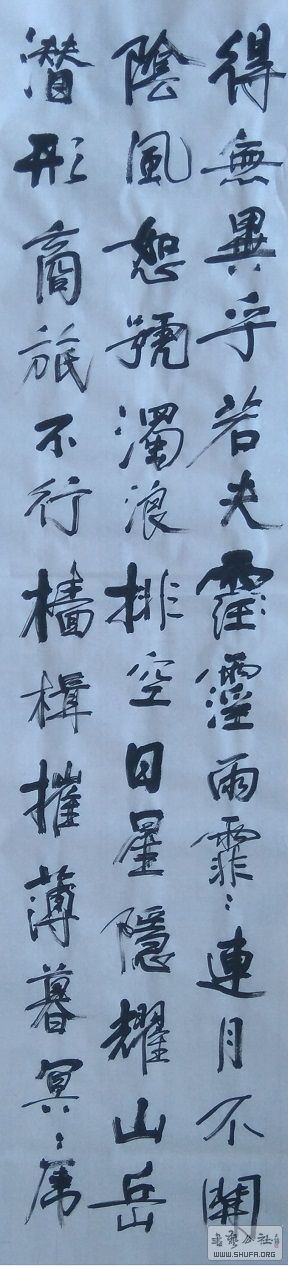 得無異乎若夫霪霪雨霏〻連月不開
陰風怒號濁浪排空日星隱耀山岳
潜形商旅不行檣楫摧薄暮冥〻虎
书艺公社
WWW.SHUFA.ORG